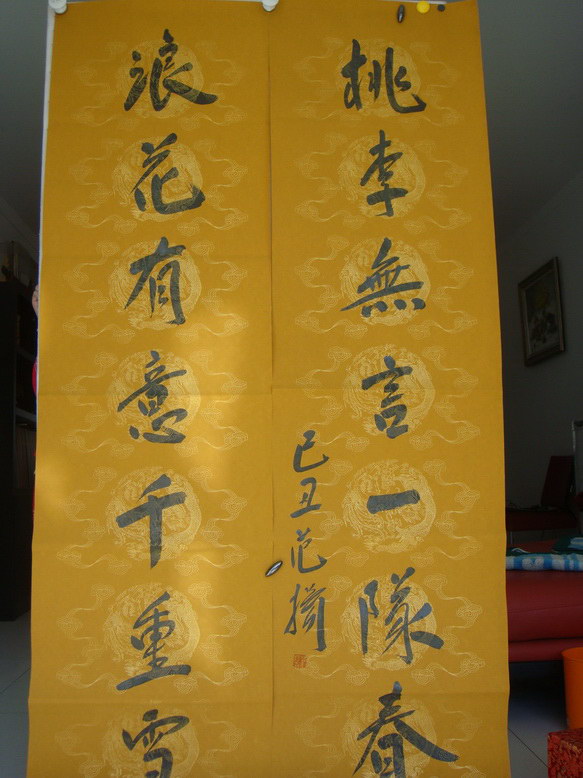 桃李無言一隊春
己丑范
浪花有意千重雪